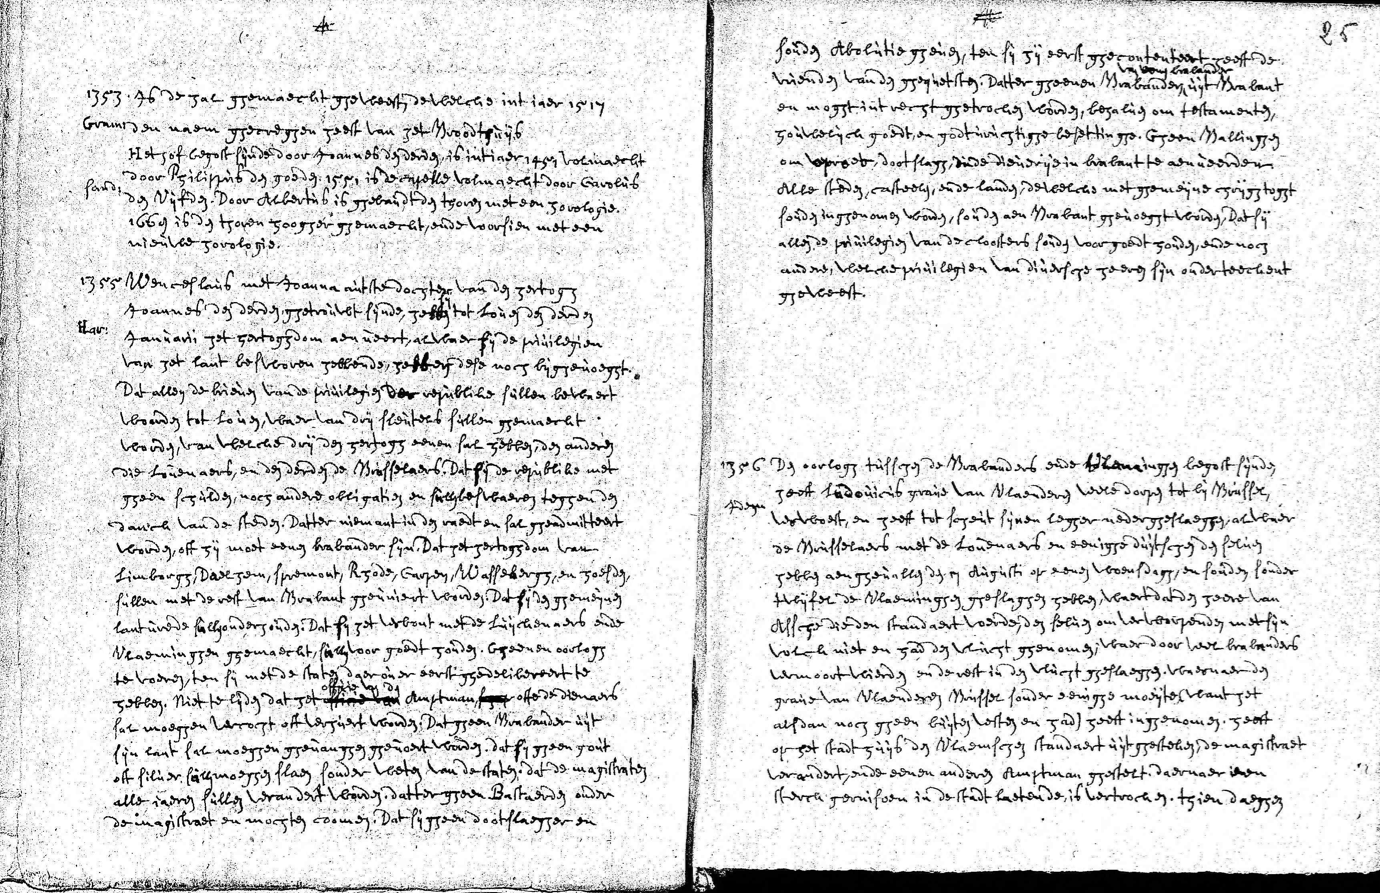 25
1353. Is de zal ghemaecht gheweest, dewelche int iaer 1517
Gram: den naem ghecreghen heeft van het Broodthuijs
Het hof begost sijnde door Joannes den derden, is int iaer 1451 volmaecht
door Philippus den goeden. 1551 is de capelle volmaecht door Carolus
Sand: den Vijfden. Door Albertus is ghebaudt den thoren met een horologie.
1660 is den thoren hoogher ghemaecht, ende voorsien met een
nieuwe horologie.
1355 Wenceslaus met Joanna autste dochter van den hertogh
Joannes den derden ghetrouwt sijnde, tot Loven den derden
Har: Januarii het hertoghdom aenveert, alwaer sij de privilegien
van het lant besworen hebbende, hebben dese noch bijghevoeght.
Dat allen de brieven van de privilegien der republike sullen bewaert
woorden tot Loven, waer van drij sleutels sullen ghemaecht
worden, van welche drij den hertogh eenen sal hebben, den anderen
die Lovenaers, en den derden de Brusselaers. Dat sij de republike met
gheen schulden, noch andere obligatien en sullen beswaeren teghen den
danch van de steden. Datter niemant in den raedt en sal gheadmitteert
worden, oft hij moet eenen brabander sijn. Dat het hertoghdom van
Limborgh, Daelhem, Spremont, Rhode, Carpen, Wassebergh, en
sullen met de rest van Brabant gheuniert worden. Dat sij den ghemeijnen
lantvrede sullen onderhouden. Dat sij het verbont met de Luijchenaers ende
Vlaeminghen ghemaecht, sullen voor goedt houden. Gheenen oorlogh
te voeren, ten sij met de staten daer over eerst ghedelibereert te
hebben. Niet te lijden dat het officie van den Amptman oft de dienaers
sal moeghen vercocht oft verhuert worden. Dat gheen Brabander uijt
sijn lant sal moeghen ghevanghen ghevoert worden. dat sij gheen gout
oft silver sullen moeghen slaen sonder weten van de staten. dat de magistraten
alle iaeren sullen verandert worden. datter gheen Bastaerden onder
de magistraet en mochten coomen. Dat sij gheen dootslaegher en
souden Abolutie gheven, ten sij hij eerst ghecontenteert heeft de
vrienden van den ghequetsten. Datter gheenen Brabander, uijt Brabant
en moght int recht ghetrochen worden, behalven om testamenten,
houwelijch goedt, en godtvrughtighe besettinghe. Gheen Ballinghen
om dootslagh, ende dieverije in brabant te aenveerden
Alle steden, casteelen, ende landen, dewelche met ghemeijne chrijghstoght
souden inghenomen worden, souden aen Brabant ghevoeght worden, Dat sij
allen de privilegien van de cloosters souden voor goedt houden, ende noch
andere, welche privilegien van diversche heeren sijn onderteechent
gheweest.
1356 Den oorlogh tusschen de Brabanders ende Vlaminghen begost sijnde
heeft Ludovicus grave van Vlaenderen veele dorpen tot bij Brussel,
verwoest, en heeft tot Scheut sijnen legher nederghesleghen, alwaer
de Brusselaers met de Lovenaers en eenighe duijtschen den selven
hebben aenghevallen den 17 Augusti op eenen woensdagh, en souden sonder
twijfel de Vlaeminghen gheslaghen hebben, waert dat den heere van
Assche die den standaert voerde, den selven om verworpende met sijn
volch niet en had den vlucht ghenomen, waer door veel brabanders
vermoort wierden en de rest in den vlucht gheslaeghen. waernaer den
grave van Vlaenderen Brussel sonder eenighe moeijte, want het
alsdan noch gheen buijten vesten en had, heeft inghenomen. heeft
op het stadt huijs den Vlaemschen standaert uijtghesteken, de magistraet
verandert, ende eenen anderen Amptman ghestelt. daernaer een
sterch gernisoen in de stadt laetende, is vertrochen. thien daeghen